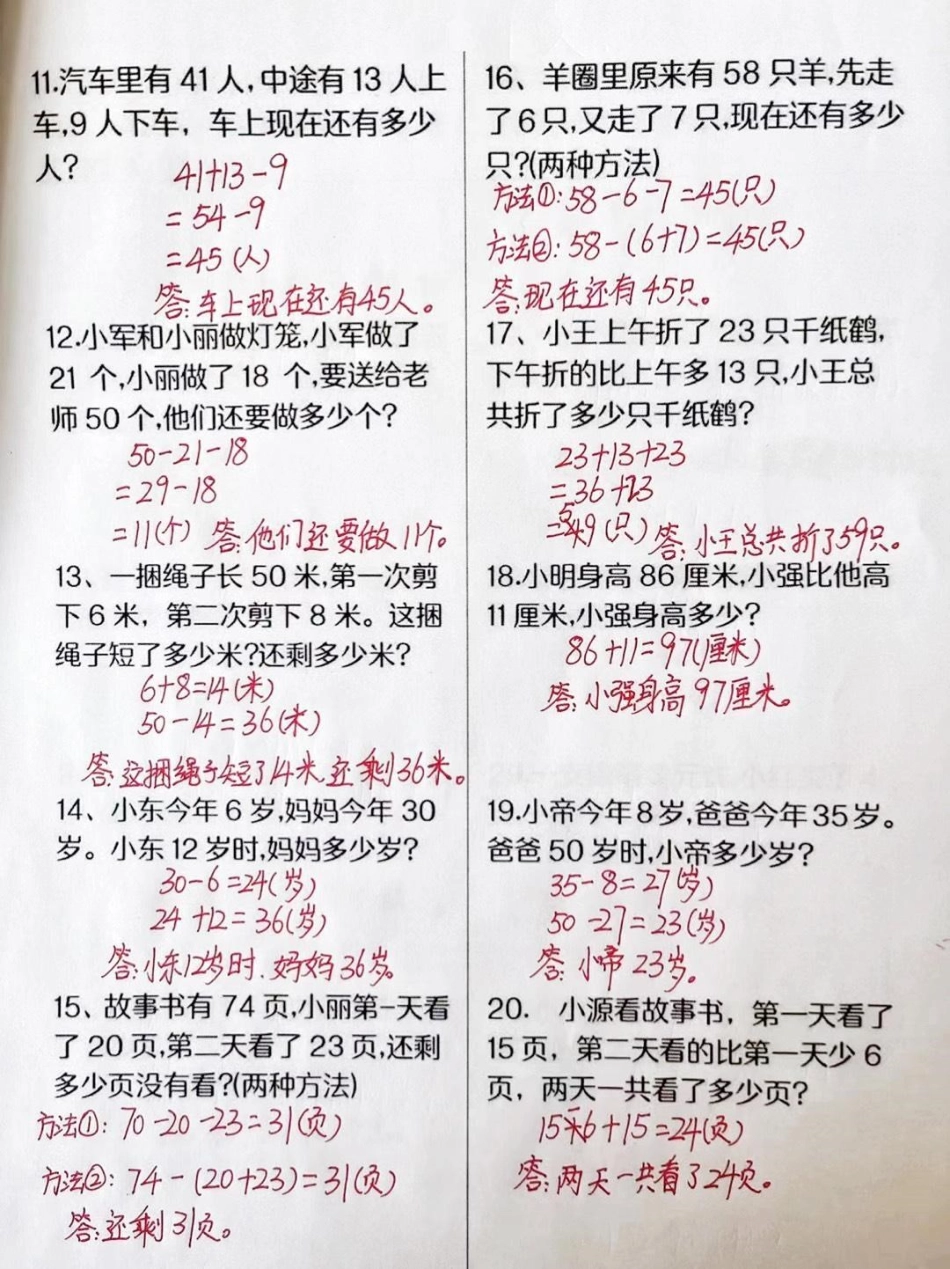 11.汽车里有 41 人,中途有 13 人上
车,9 人下车，车上现在还有多少
人?
41+13-9
=54-9
=45(人)
答:车上现在还有45人。
12.小军和小丽做灯笼,小军做了
21 个,小丽做了 18 个,要送给老
师 50 个,他们还要做多少个?
50-21-18
=29-18
=11(个) 答:他们还要做11个。
13、一捆绳子长 50 米,第一次剪
下 6 米，第二次剪下 8 米。这捆
绳子短了多少米?还剩多少米?
6+8=14(米)
50-14=36(米)
答:这捆绳子短了14米,还剩36米。
14、小东今年 6 岁,妈妈今年 30
岁。小东 12 岁时,妈妈多少岁?
30-6=24(岁)
24+12=36(岁)
答:小东12岁时,妈妈36岁。
15、故事书有 74 页,小丽第一天看
了 20 页,第二天看了 23 页,还剩
多少页没有看?(两种方法)
方法①: 70-20-23=31(页)
方法②: 74-(20+23)=31(页)
答:还剩31页。
16、羊圈里原来有 58 只羊,先走
了 6 只,又走了 7 只,现在还有多少
只?(两种方法)
方法①:58-6-7=45(只)
方法②:58-(6+7)=45(只)
答:现在还有45只。
17、小王上午折了 23 只千纸鹤,
下午折的比上午多 13 只,小王总
共折了多少只千纸鹤?
23+13+23
=36+23
=59(只) 答:小王总共折了59只。
18.小明身高 86 厘米,小强比他高
11 厘米,小强身高多少?
86+11=97(厘米)
答:小强身高97厘米。
19.小帝今年8岁,爸爸今年35岁。
爸爸 50 岁时,小帝多少岁?
35-8=27(岁)
50-27=23(岁)
答:小帝23岁。
20. 小源看故事书，第一天看了
15 页，第二天看的比第一天少 6
页，两天一共看了多少页?
15-6+15=24(页)
答:两天一共看了24页。